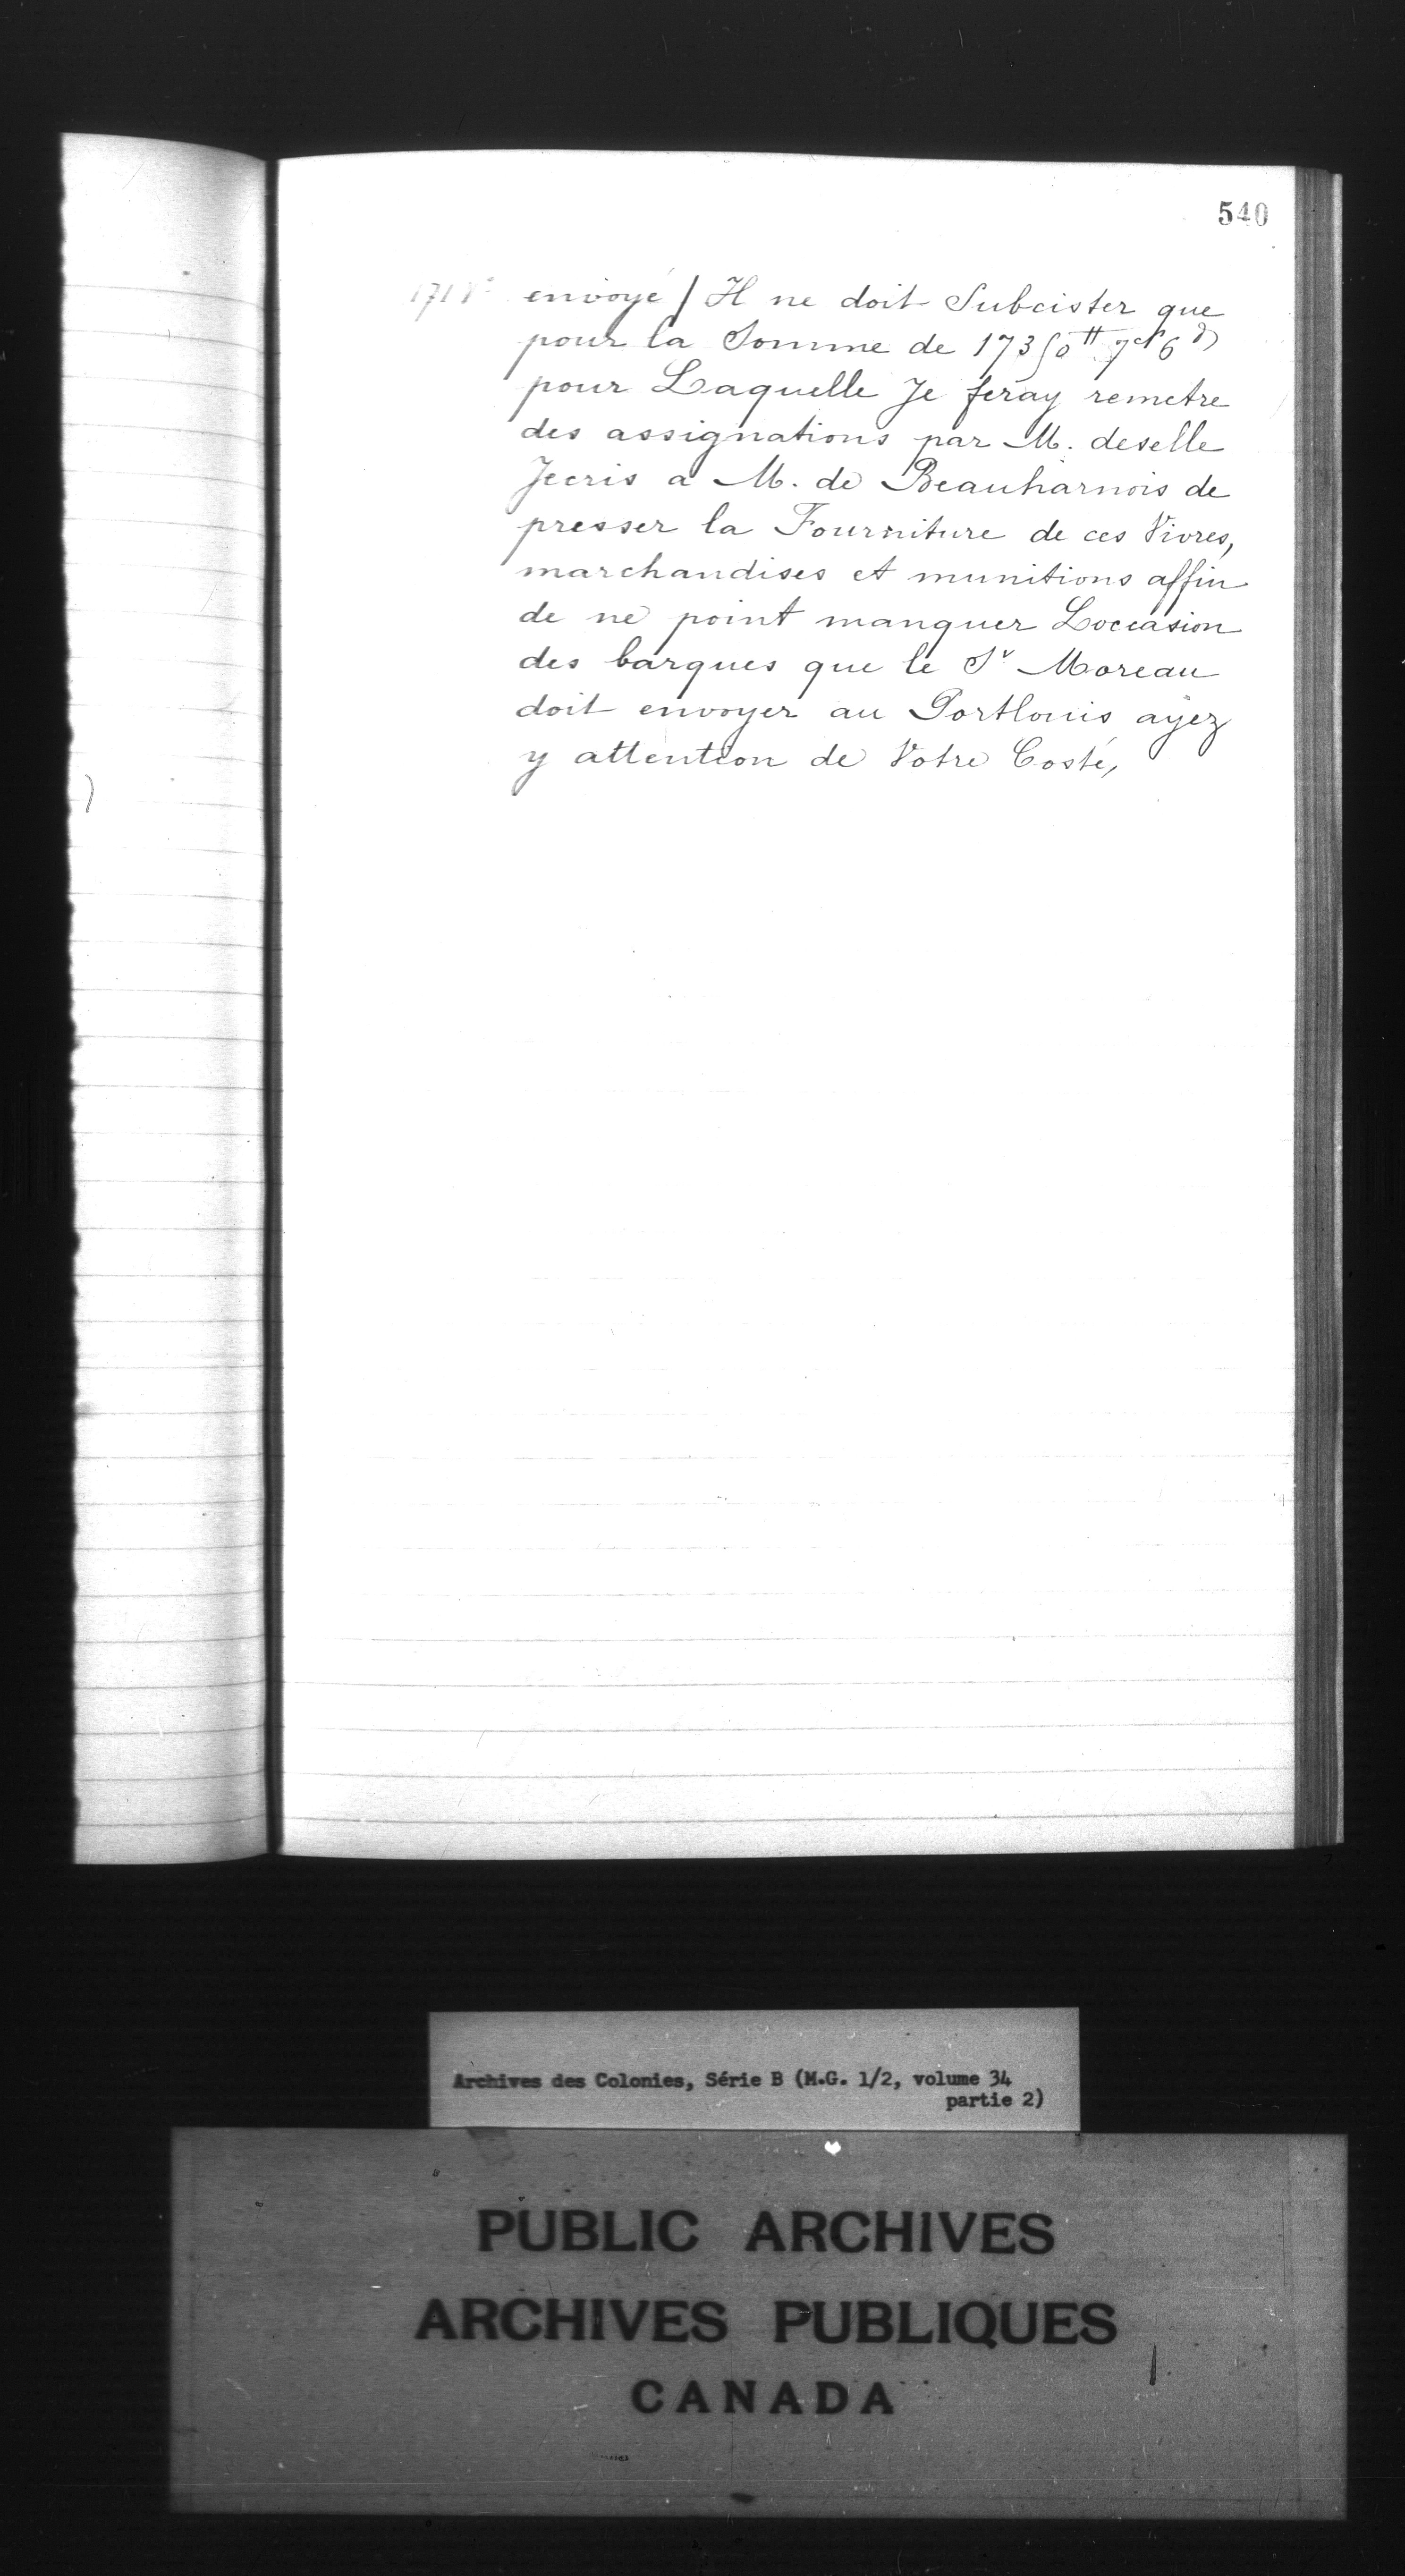 540
171 Vº envoyé / Il ne doit Subcister que
pour la Somme de 17350tt 7s 6d
pour Laquelle Je feray remetre
des assignations par M. deselle
Jecris a M. de Beauharnois de
presser la Fourniture de ces Vivres,
marchandises et munitions affin
de ne point manquer Loccasion
des barques que le Sr Moreau
doit envoyer au Portlouis ayez
y attention de Votre Costé,
Archives des Colonies, Série B (M.G. 1/2, volume 34
partie 2)
PUBLIC ARCHIVES
ARCHIVES PUBLIQUES
CANADA